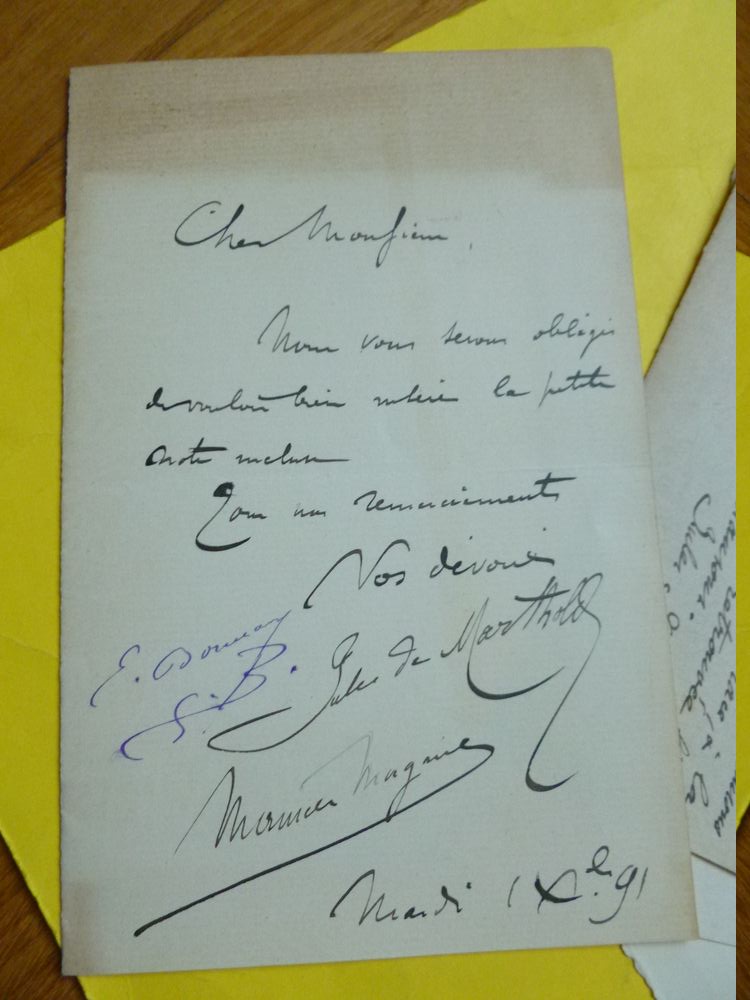 Cher Monsieur,
Nous vous serons obligés
de vouloir bien insérer la petite
note incluse
Tous nos remerciements
Vos dévoués
Jules de Marthold
E.
G. B.
Maurice Magnier
Mardi 1 Xbre 91
Jules
retrouvée
à la